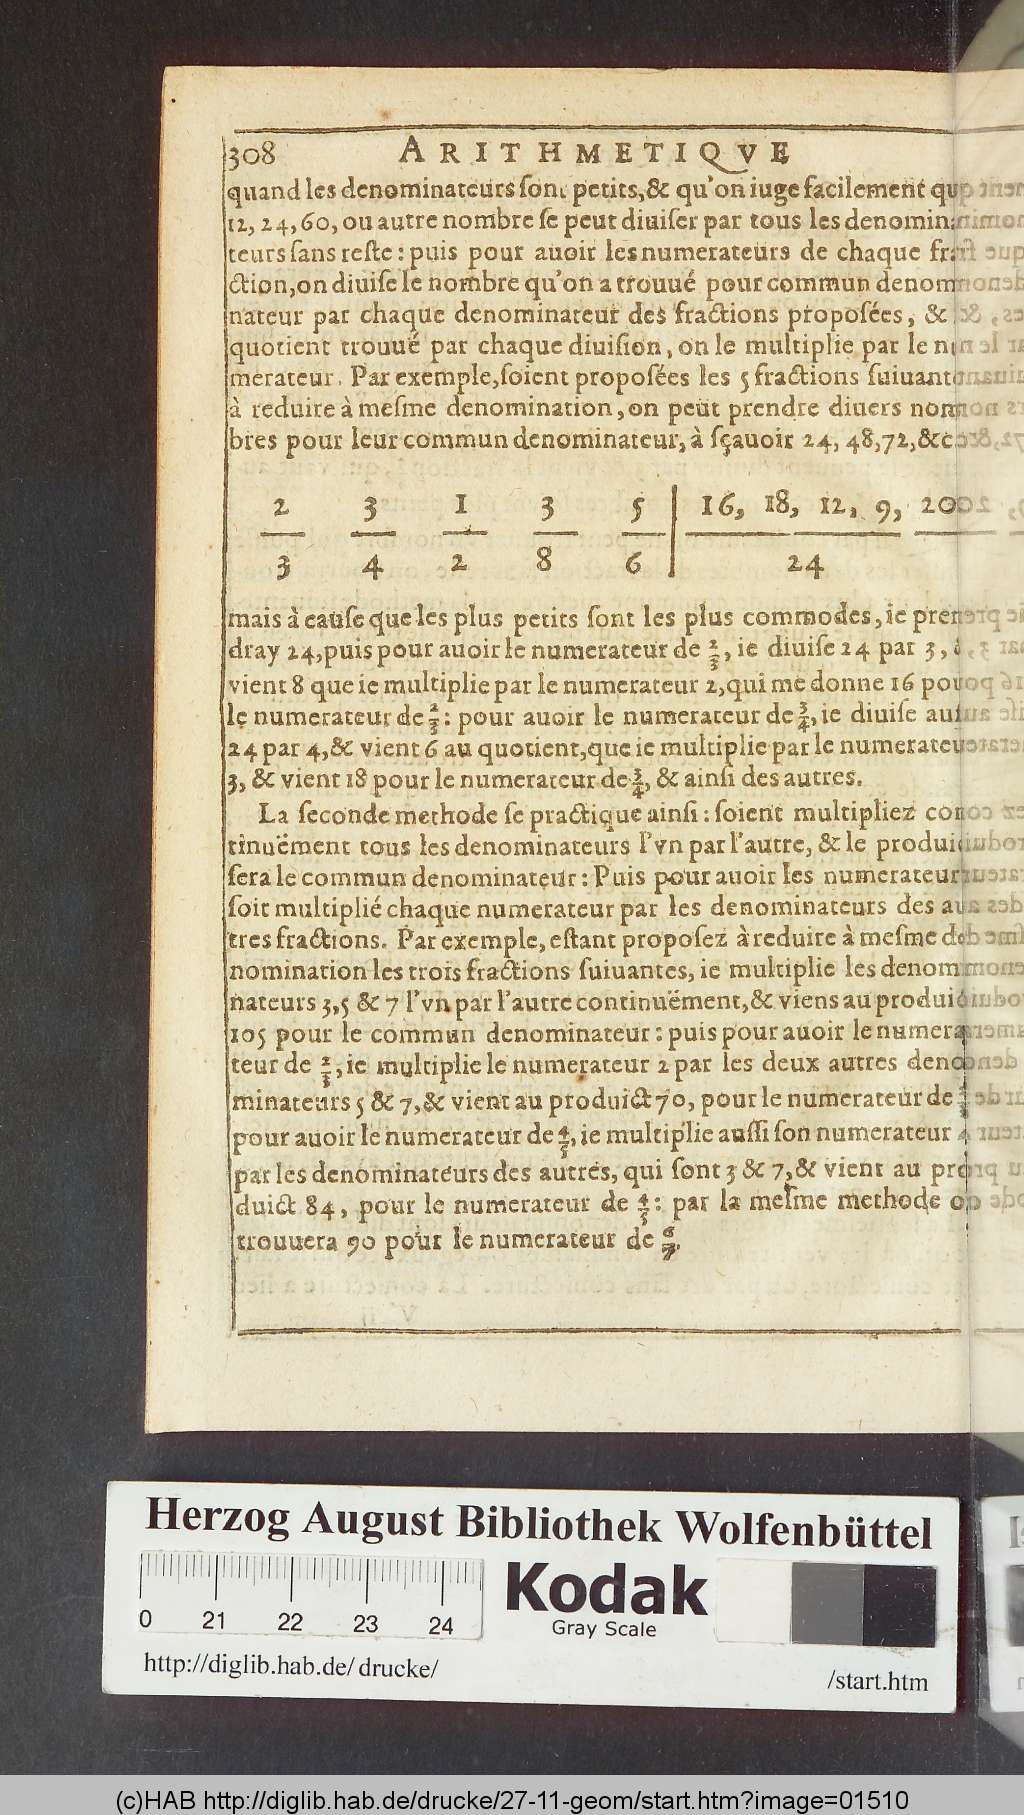 308 ARITHMETIQVE
quand les denominateurs sont petits, & qu'on iuge facilement qu
12, 24, 60, ou autre nombre se peut diuiser par tous les denomin
teurs sans reste : puis pour auoir les numerateurs de chaque fra
ction, on diuise le nombre qu'on a trouué pour commun denom
nateur par chaque denominateur des fractions proposées, &
quotient trouué par chaque diuision, on le multiplie par le n
merateur. Par exemple, soient proposées les 5 fractions suiuant
à reduire à mesme denomination, on peut prendre diuers nom
bres pour leur commun denominateur, à sçauoir 24, 48, 72, &c
2 3 1 3 5 | 16, 18, 12, 9, 20
3 4 2 8 6 | 24
mais à cause que les plus petits sont les plus commodes, ie pren
dray 24, puis pour auoir le numerateur de 2/3, ie diuise 24 par 3,
vient 8 que ie multiplie par le numerateur 2, qui me donne 16 pou
le numerateur de 2/3 : pour auoir le numerateur de 3/4, ie diuise aus
24 par 4, & vient 6 au quotient, que ie multiplie par le numerateu
3, & vient 18 pour le numerateur de 3/4, & ainsi des autres.
La seconde methode se practique ainsi : soient multipliez con
tinuëment tous les denominateurs l'vn par l'autre, & le produi
sera le commun denominateur : Puis pour auoir les numerateur
soit multiplié chaque numerateur par les denominateurs des au
tres fractions. Par exemple, estant proposez à reduire à mesme de
nomination les trois fractions suiuantes, ie multiplie les denom
nateurs 3, 5 & 7 l'vn par l'autre continuëment, & viens au produi
105 pour le commun denominateur : puis pour auoir le numera
teur de 2/3, ie multiplie le numerateur 2 par les deux autres deno
minateurs 5 & 7, & vient au produict 70, pour le numerateur de 2/3
pour auoir le numerateur de 4/5, ie multiplie aussi son numerateur 4
par les denominateurs des autres, qui sont 3 & 7, & vient au pro
duict 84, pour le numerateur de 4/5 : par la mesme methode o
trouuera 90 pour le numerateur de 6/7.
Herzog August Bibliothek Wolfenbüttel
0 21 22 23 24
Kodak
Gray Scale
http://diglib.hab.de/drucke/ /start.htm
(c)HAB http://diglib.hab.de/drucke/27-11-geom/start.htm?image=01510